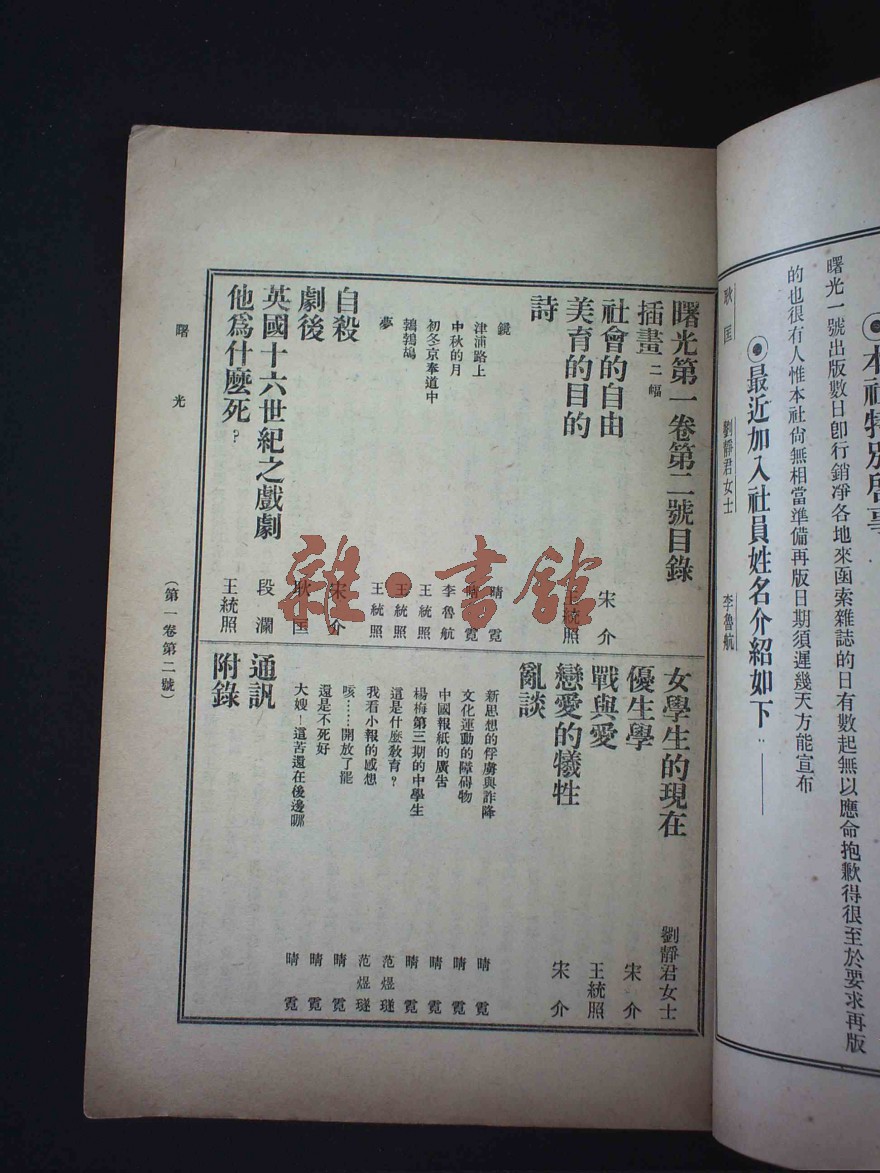 ◉本社特別啓事
曙光一號出版數日卽行銷凈各地來函索雜誌的日有數起無以應命抱歉得很至於要求再版
的也很有人惟本社尙無相當準備再版日期須遲幾天方能宣布
◉最近加入社員姓名介紹如下：——
耿匡 劉靜君女士 李魯航
曙光第一卷第二號目錄
插畫 二幅
社會的自由 宋介
美育的目的 王統照
詩
鏡 晴霓
津浦路上 晴霓
中秋的月 李魯航
初冬京奉道中 王統照
鵓鴣 王統照
夢 王統照
自殺 宋介
劇後 耿匡
英國十六世紀之戲劇 段瀾
他爲什麼死？ 王統照
女學生的現在 劉靜君女士
優生學 宋介
戰與愛 王統照
戀愛的犧牲 宋介
亂談
新思想的俘虜與詐降 晴霓
文化運動的障碍物 晴霓
中國報紙的廣吿 晴霓
楊梅第三期的中學生 晴霓
這是什麼敎育？ 范煜璲
我看小報的感想 范煜璲
咳……開放了罷 晴霓
還是不死好 晴霓
大嫂！這苦還在後邊哪 晴霓
通訊
附錄
曙光
（第一卷第二號）
雜·書館